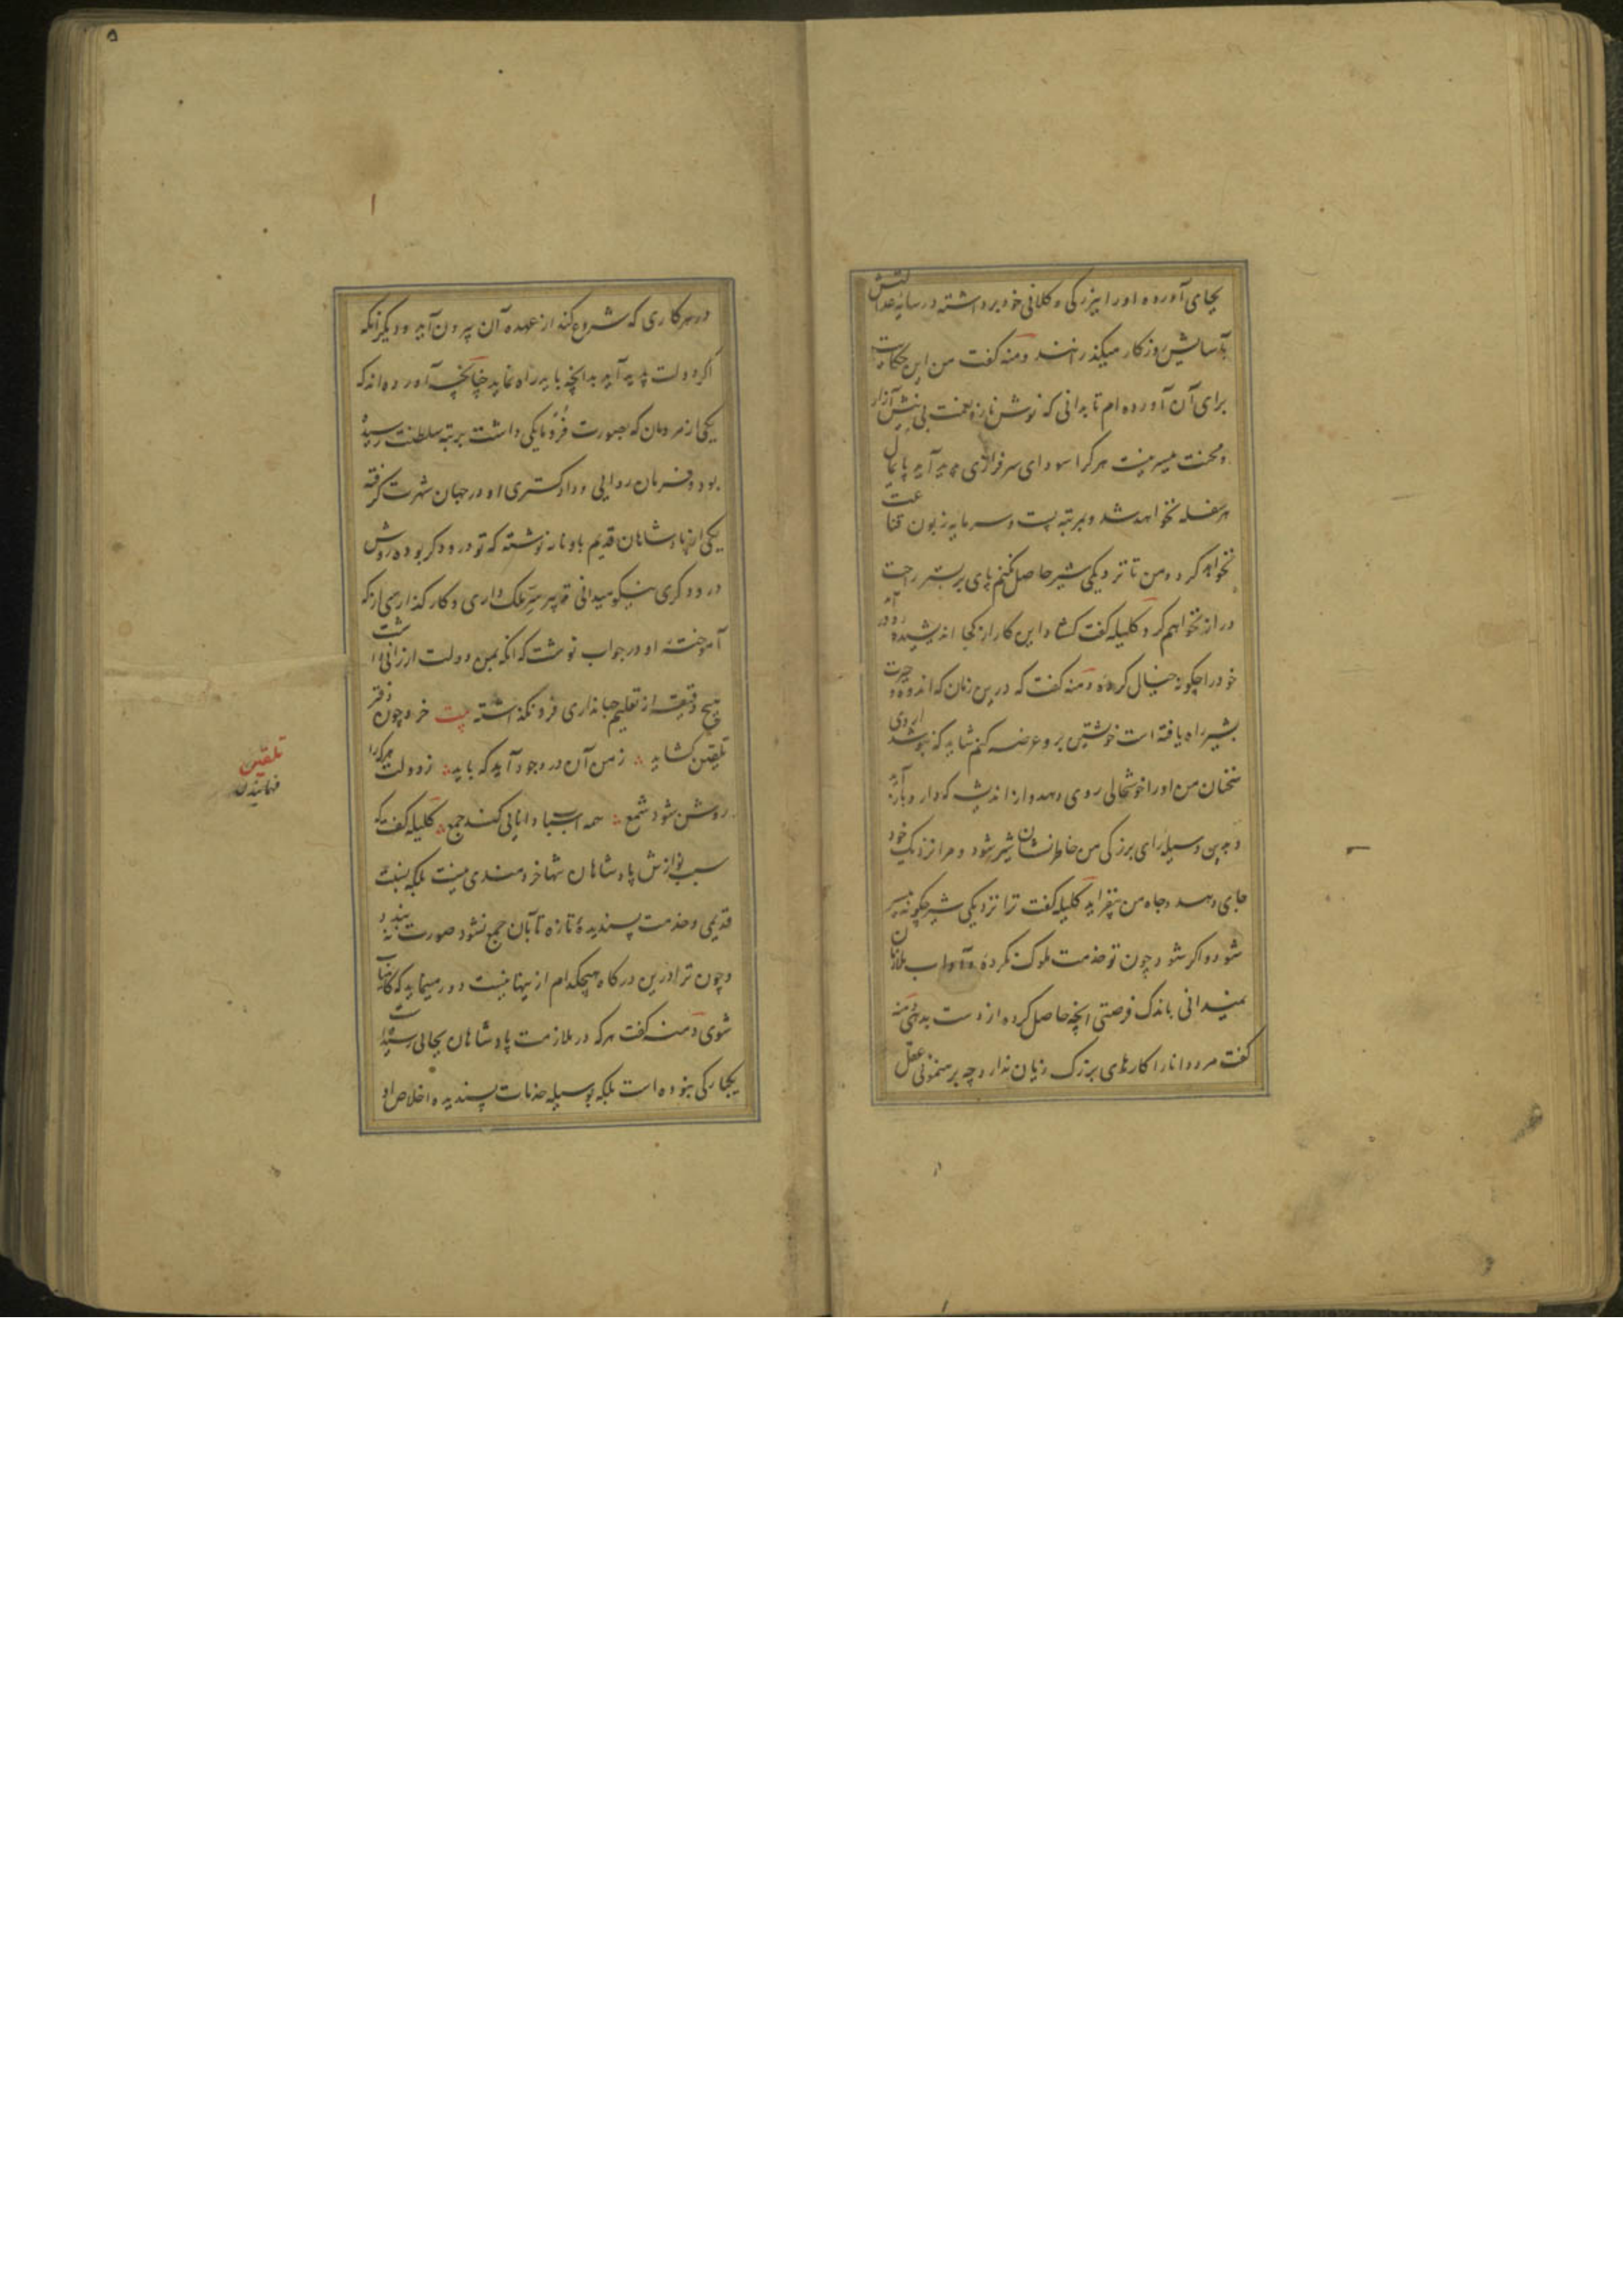 بجای آورده او را ببزرگی و کلانی خود برداشته در سایه عدالتش
بآسایش روزکار میکذرانند دمنه کفت من این حکایت
برای آن آورده ام تا بدانی که نوش ناز و نعمت بی نیش آزار
و محنت میسر نیست هر کرا سودای سرفرازی پدید آید پایمال
هر سفله نخواهد شد و بمرتبه پست و سرمایه زبون قناعت
نخواهد کرد و من تا نزدیکی شیر حاصل نکنم پای بر بستر راحت
دراز نخواهم کرد کلیله کفت کشاد این کار از کجا اندیشیده و در آمد
خود را چکونه خیال کرده دمنه کفت که درین زمان که اندوه و حیرت
بشیر راه یافته است خویشتن برو عرضه کنم شاید که بنوشداروی
سخنان من او را خوشحالی روی دهد و از اندیشه که دارد باز آید
و بدین وسیله رای بزرکی من خاطرنشان شیر شود و مرا نزدیک خود
جای دهد و جاه من بیفزاید کلیله کفت ترا نزدیکی شیر چکونه میسر
شود و اکر شود چون تو خدمت ملوک نکرده و آداب ملازمان
نمیدانی باندک فرصتی انچه حاصل کرده از دست بدهی دمنه
کفت مرد دانا را کارهای بزرک زیان ندارد چه برهنمونی عقل
در هر کاری که شروع کند از عهده آن بیرون آید و دیکر انکه
اکر دولت پدید آید بدانچه باید راه نماید چنانچه آورده اند که
یکی از مردمان که بصورت فرومایکی داشت بمرتبه سلطنت رسیده
بود و فرمان روایی و دادکستری او در جهان شهرت کرفته
یکی از پادشاهان قدیم باو نامه نوشته که تو درودکر بوده و روش
درودکری نیکو میدانی تدبیر ملک داری و کارکذاری از که
آموخته او در جواب نوشت که انکه بمن دولت ارزانی داشت
هیچ دقیقه از تعلیم جهانداری فرونکذاشته بیت خرد چون دفتر
تلقین کشاید ز من آن در وجود آید که باید ز دولت هر کرا
روشن شود شمع همه اسباب دانایی کند جمع کلیله کفت که
سبب نوازش پادشاهان تنها خردمندی نیست بلکه نسبت
قدیمی و خدمت پسندیده تازه تا بآن جمع نشود صورت نه بندد
و چون ترا درین درکاه هیچکدام از ینها نیست دور مینماید که کامیاب
شوی دمنه کفت هر که در ملازمت پادشاهان بجائی رسیده است
یکبارکی نبوده است بلکه بوسیله خدمات پسندیده و اخلاص او
تلقین
فهمانیدن